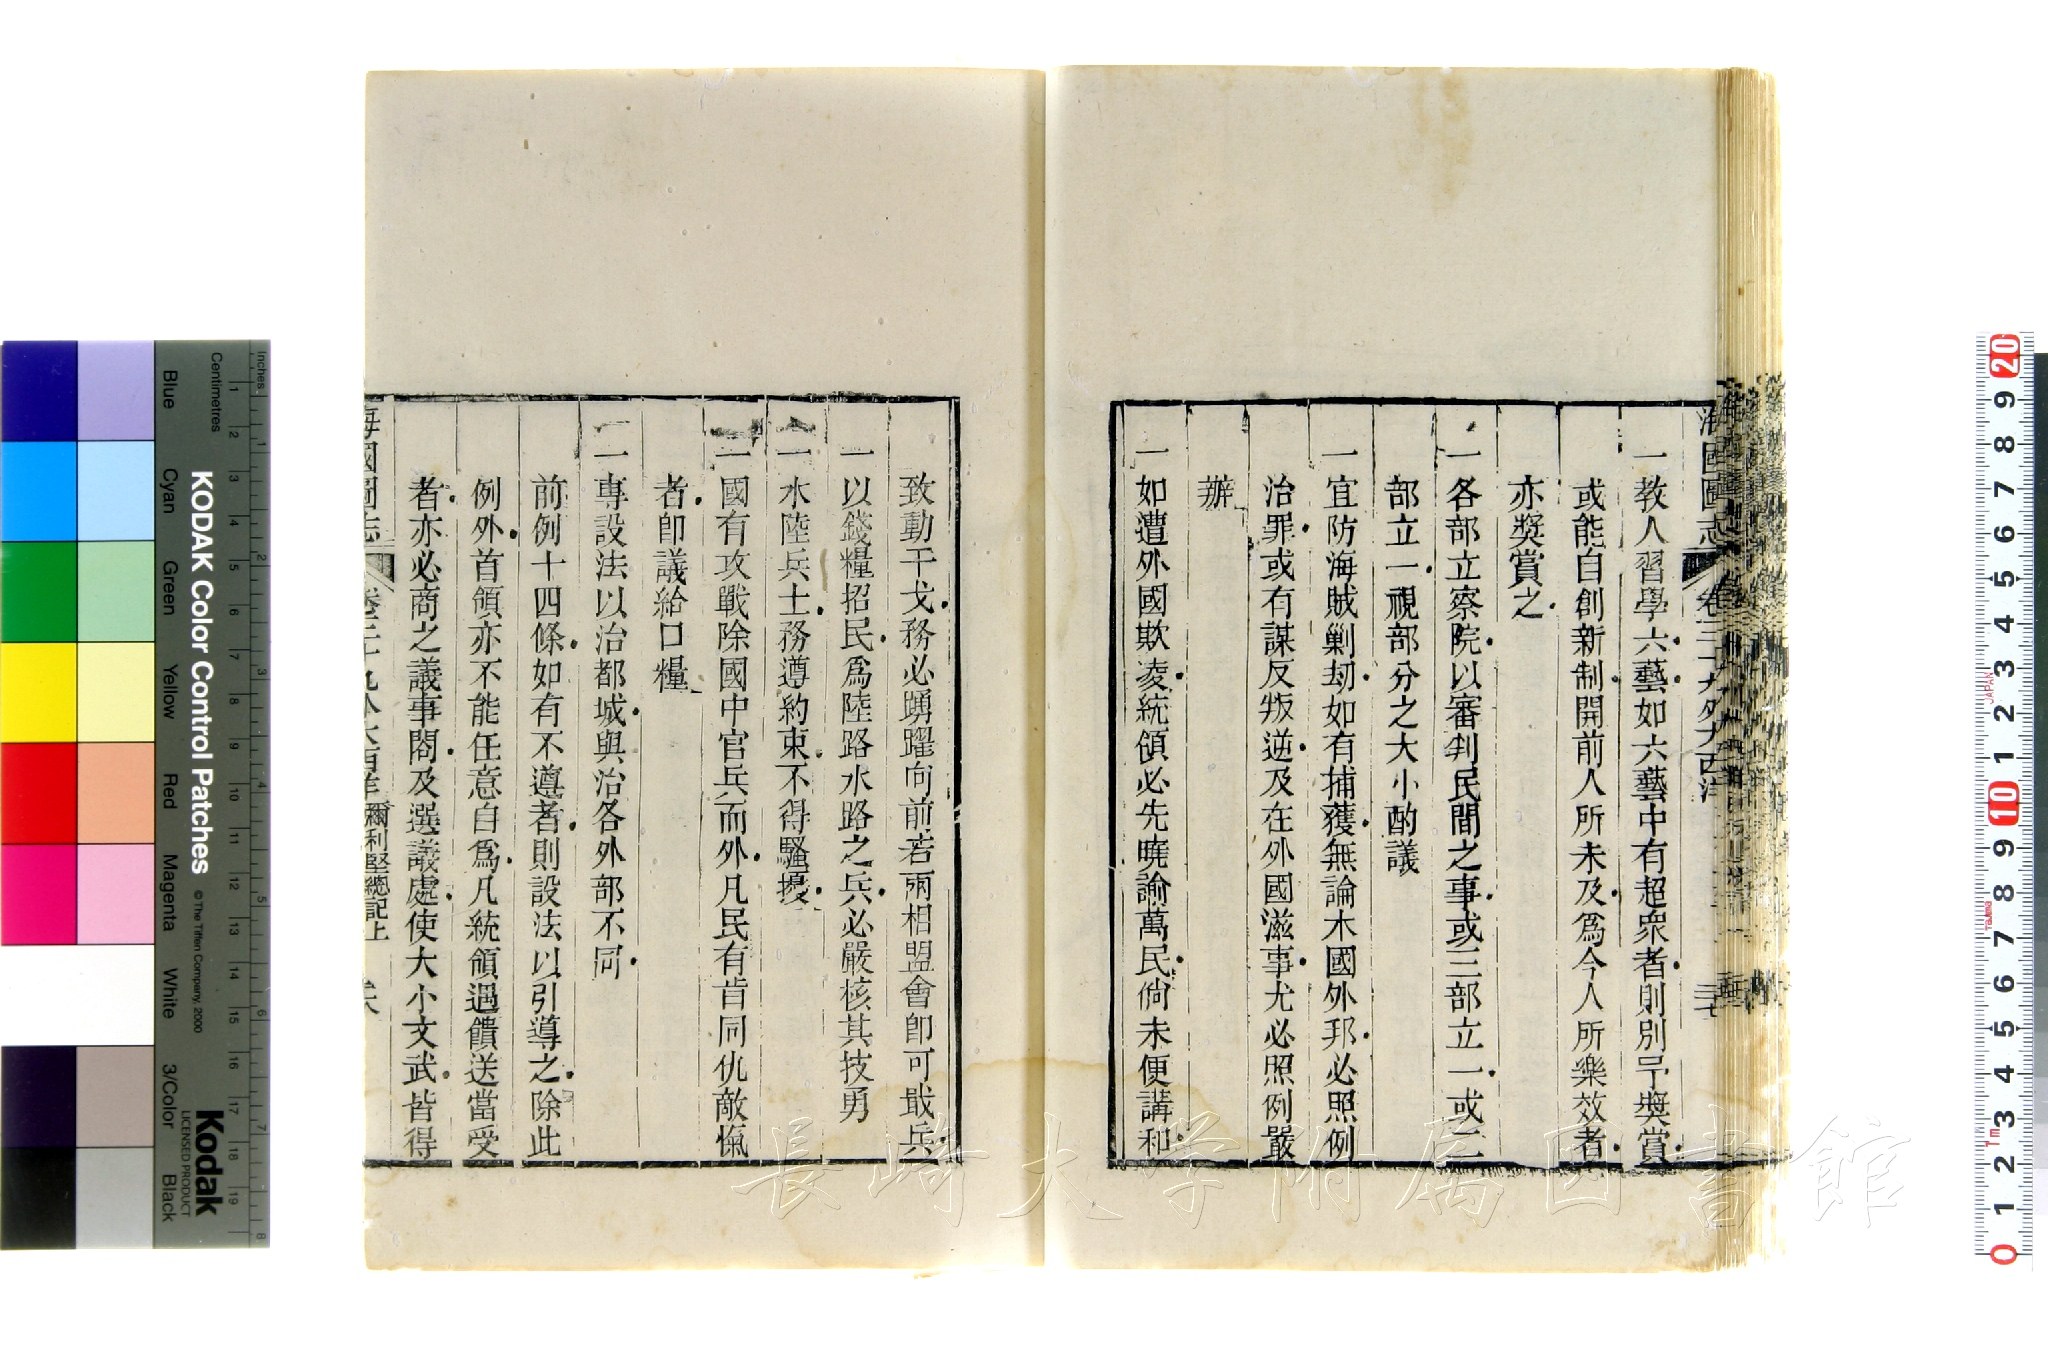 海國圖志 卷三十九外大西洋 三七
一教人習學六藝如六藝中有超衆者則別予獎賞
或能自創新制開前人所未及爲今人所樂效者
亦獎賞之
一各部立察院以審判民間之事或三部立一或二
部立一視部分之大小酌議
一宜防海賊剿刧如有捕獲無論本國外邦必照例
治罪或有謀反叛逆及在外國滋事尤必照例嚴
辦
一如遭外國欺凌統領必先曉諭萬民倘未便講和
致動干戈務必踴躍向前若兩相盟會卽可戢兵
一以錢糧招民爲陸路水路之兵必嚴核其技勇
一水陸兵士務遵約束不得騷擾
一國有攻戰除國中官兵而外凡民有肯同仇敵愾
者卽議給口糧
一專設法以治都城與治各外部不同
前例十四條如有不遵者則設法以引導之除此
例外首領亦不能任意自爲凡統領過饋送當受
者亦必商之議事閣及選議處使大小文武皆得
海國圖志 彌利堅總記上
長崎大学附属図書館
KODAK Color Control Patches
© The Tiffen Company, 2000
Kodak
LICENSED PRODUCT
Inches
Centimetres
Blue
Cyan
Green
Yellow
Red
Magenta
White
3/Color
Black
1 2 3 4 5 6 7 8 9 10 11 12 13 14 15 16 17 18 19
1 2 3 4 5 6 7 8
20 9 8 7 6 5 4 3 2 1 10 9 8 7 6 5 4 3 2 1 0
JAPAN